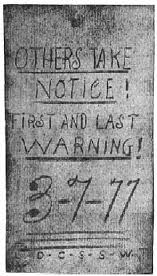 OTHERS TAKE
NOTICE!
FIRST AND LAST
WARNING!
3-7-77
D-C-S-S-W-T